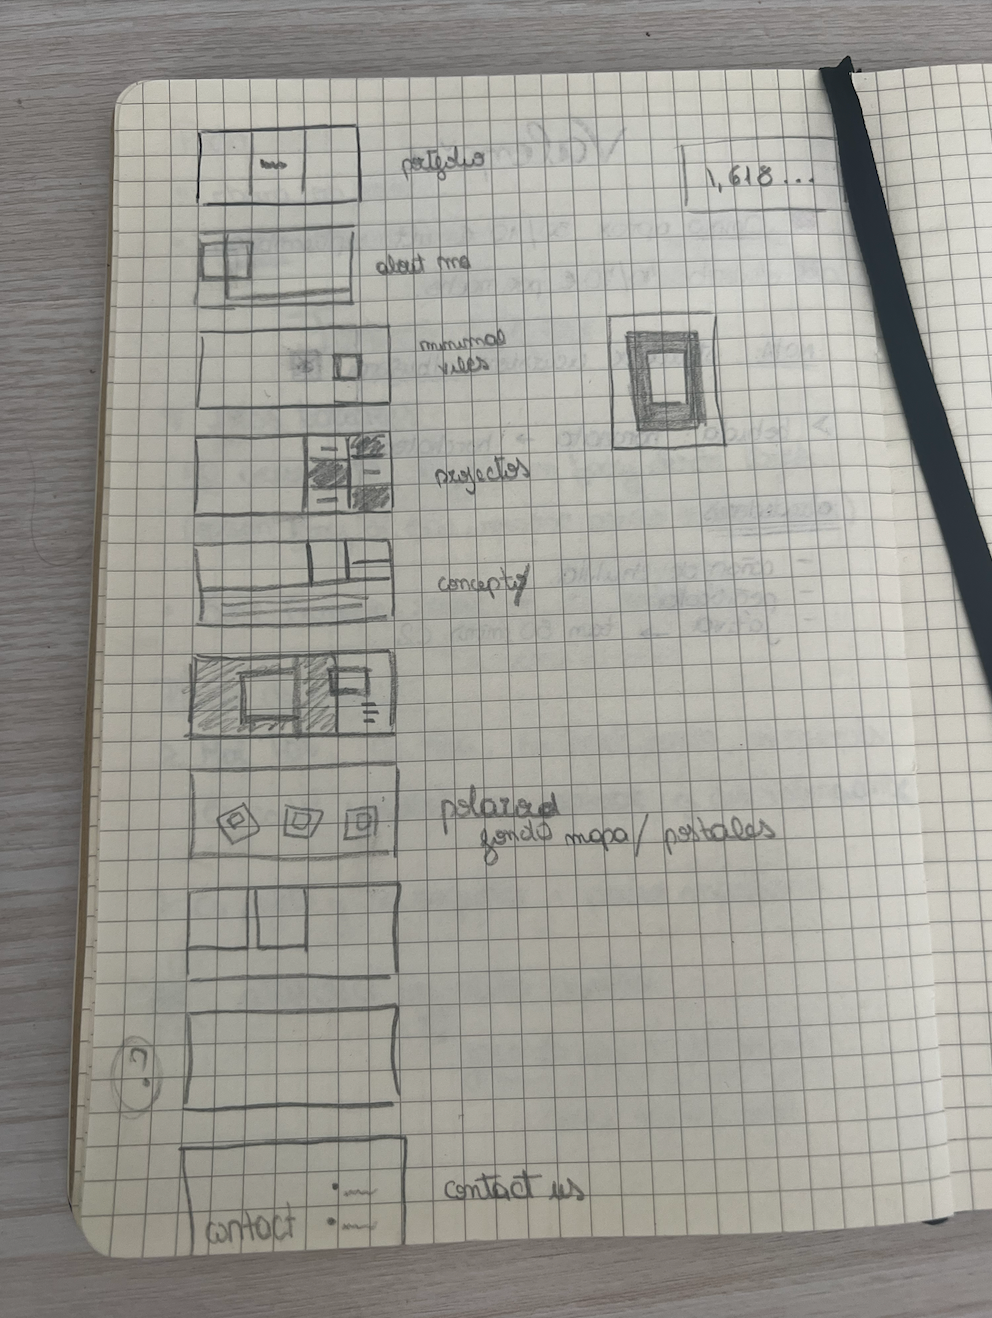 portfolio
1,618...
about me
minimal
vibes
projectos
concepts
polaroid
fondo mapa / postales
?
contact us
contact